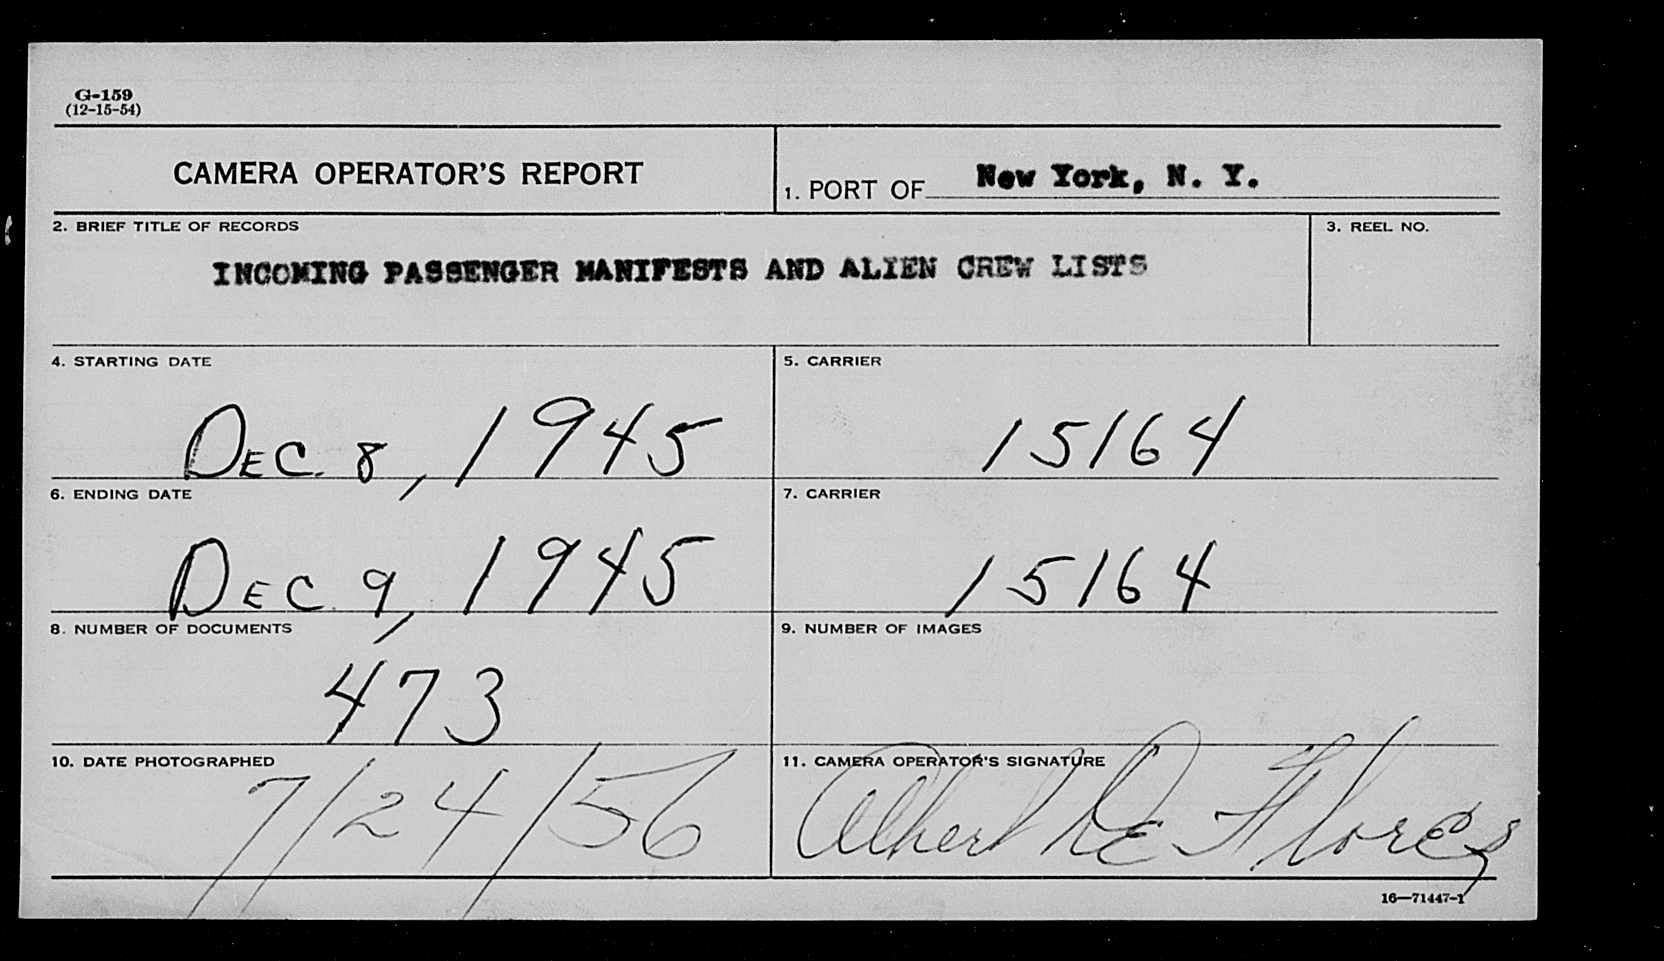 G-159
(12-15-54)
CAMERA OPERATOR'S REPORT
1. PORT OF New York, N. Y.
2. BRIEF TITLE OF RECORDS
INCOMING PASSENGER MANIFESTS AND ALIEN CREW LISTS
3. REEL NO.
4. STARTING DATE
DEC. 8, 1945
5. CARRIER
15164
6. ENDING DATE
DEC. 9, 1945
7. CARRIER
15164
8. NUMBER OF DOCUMENTS
473
9. NUMBER OF IMAGES
10. DATE PHOTOGRAPHED
7/24/56
11. CAMERA OPERATOR'S SIGNATURE
Albert De Flores
16—71447-1